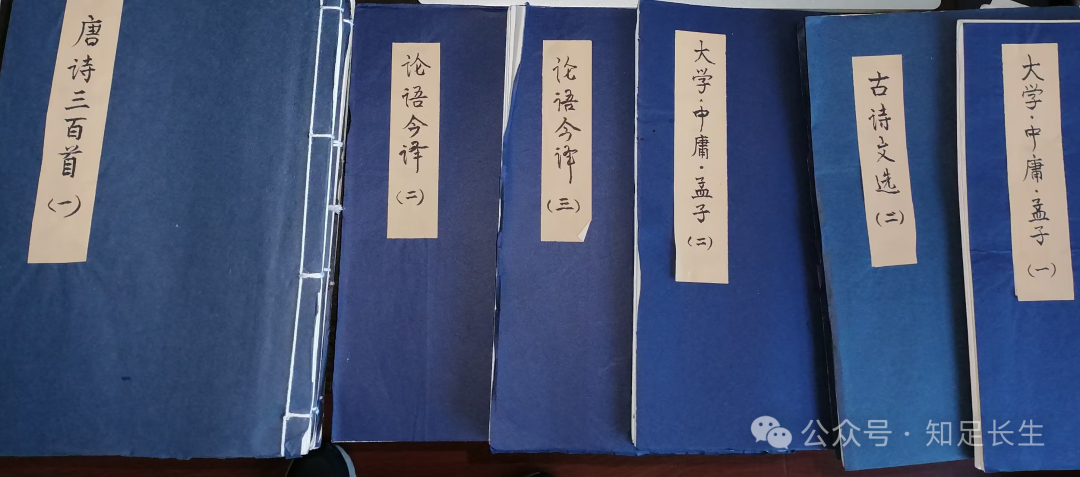 唐诗三百首(一)
论语今译(二)
论语今译(三)
大学·中庸·孟子(二)
古诗文选(二)
大学·中庸·孟子(一)
公众号·知足长生